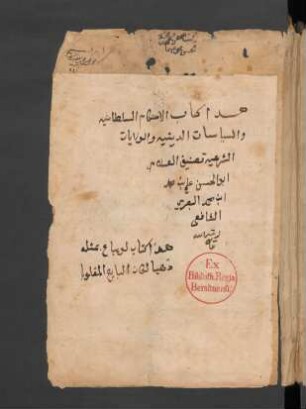 هذا كتاب الاحكام السلطانيه
والسياسات الدينيه والولايات
الشرعيه تصنيف
ابو الحسن على بن محمد
ابن محمد البصرى
الشافعى
هذا كتاب لو يباع بمثله
ذهبا لكان البايع المغلوبا
Ex
Biblioth. Regia
Berolinensi.